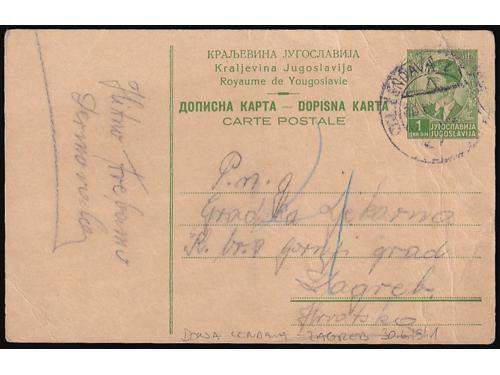 КРАЉЕВИНА ЈУГОСЛАВИЈА
Kraljevina Jugoslavija
Royaume de Yougoslavie
ДОПИСНА КАРТА — DOPISNA KARTA
CARTE POSTALE
LENDAVA
1
ЈУГОСЛАВИЈА
JUGOSLAVIJA
Hitno trebamo
P. n. g.
Gradska Ljekarna
K. br. 9 gornji grad
Zagreb
Hrvatska
DONJA LENDAVA - ZAGREB 30.6.1941